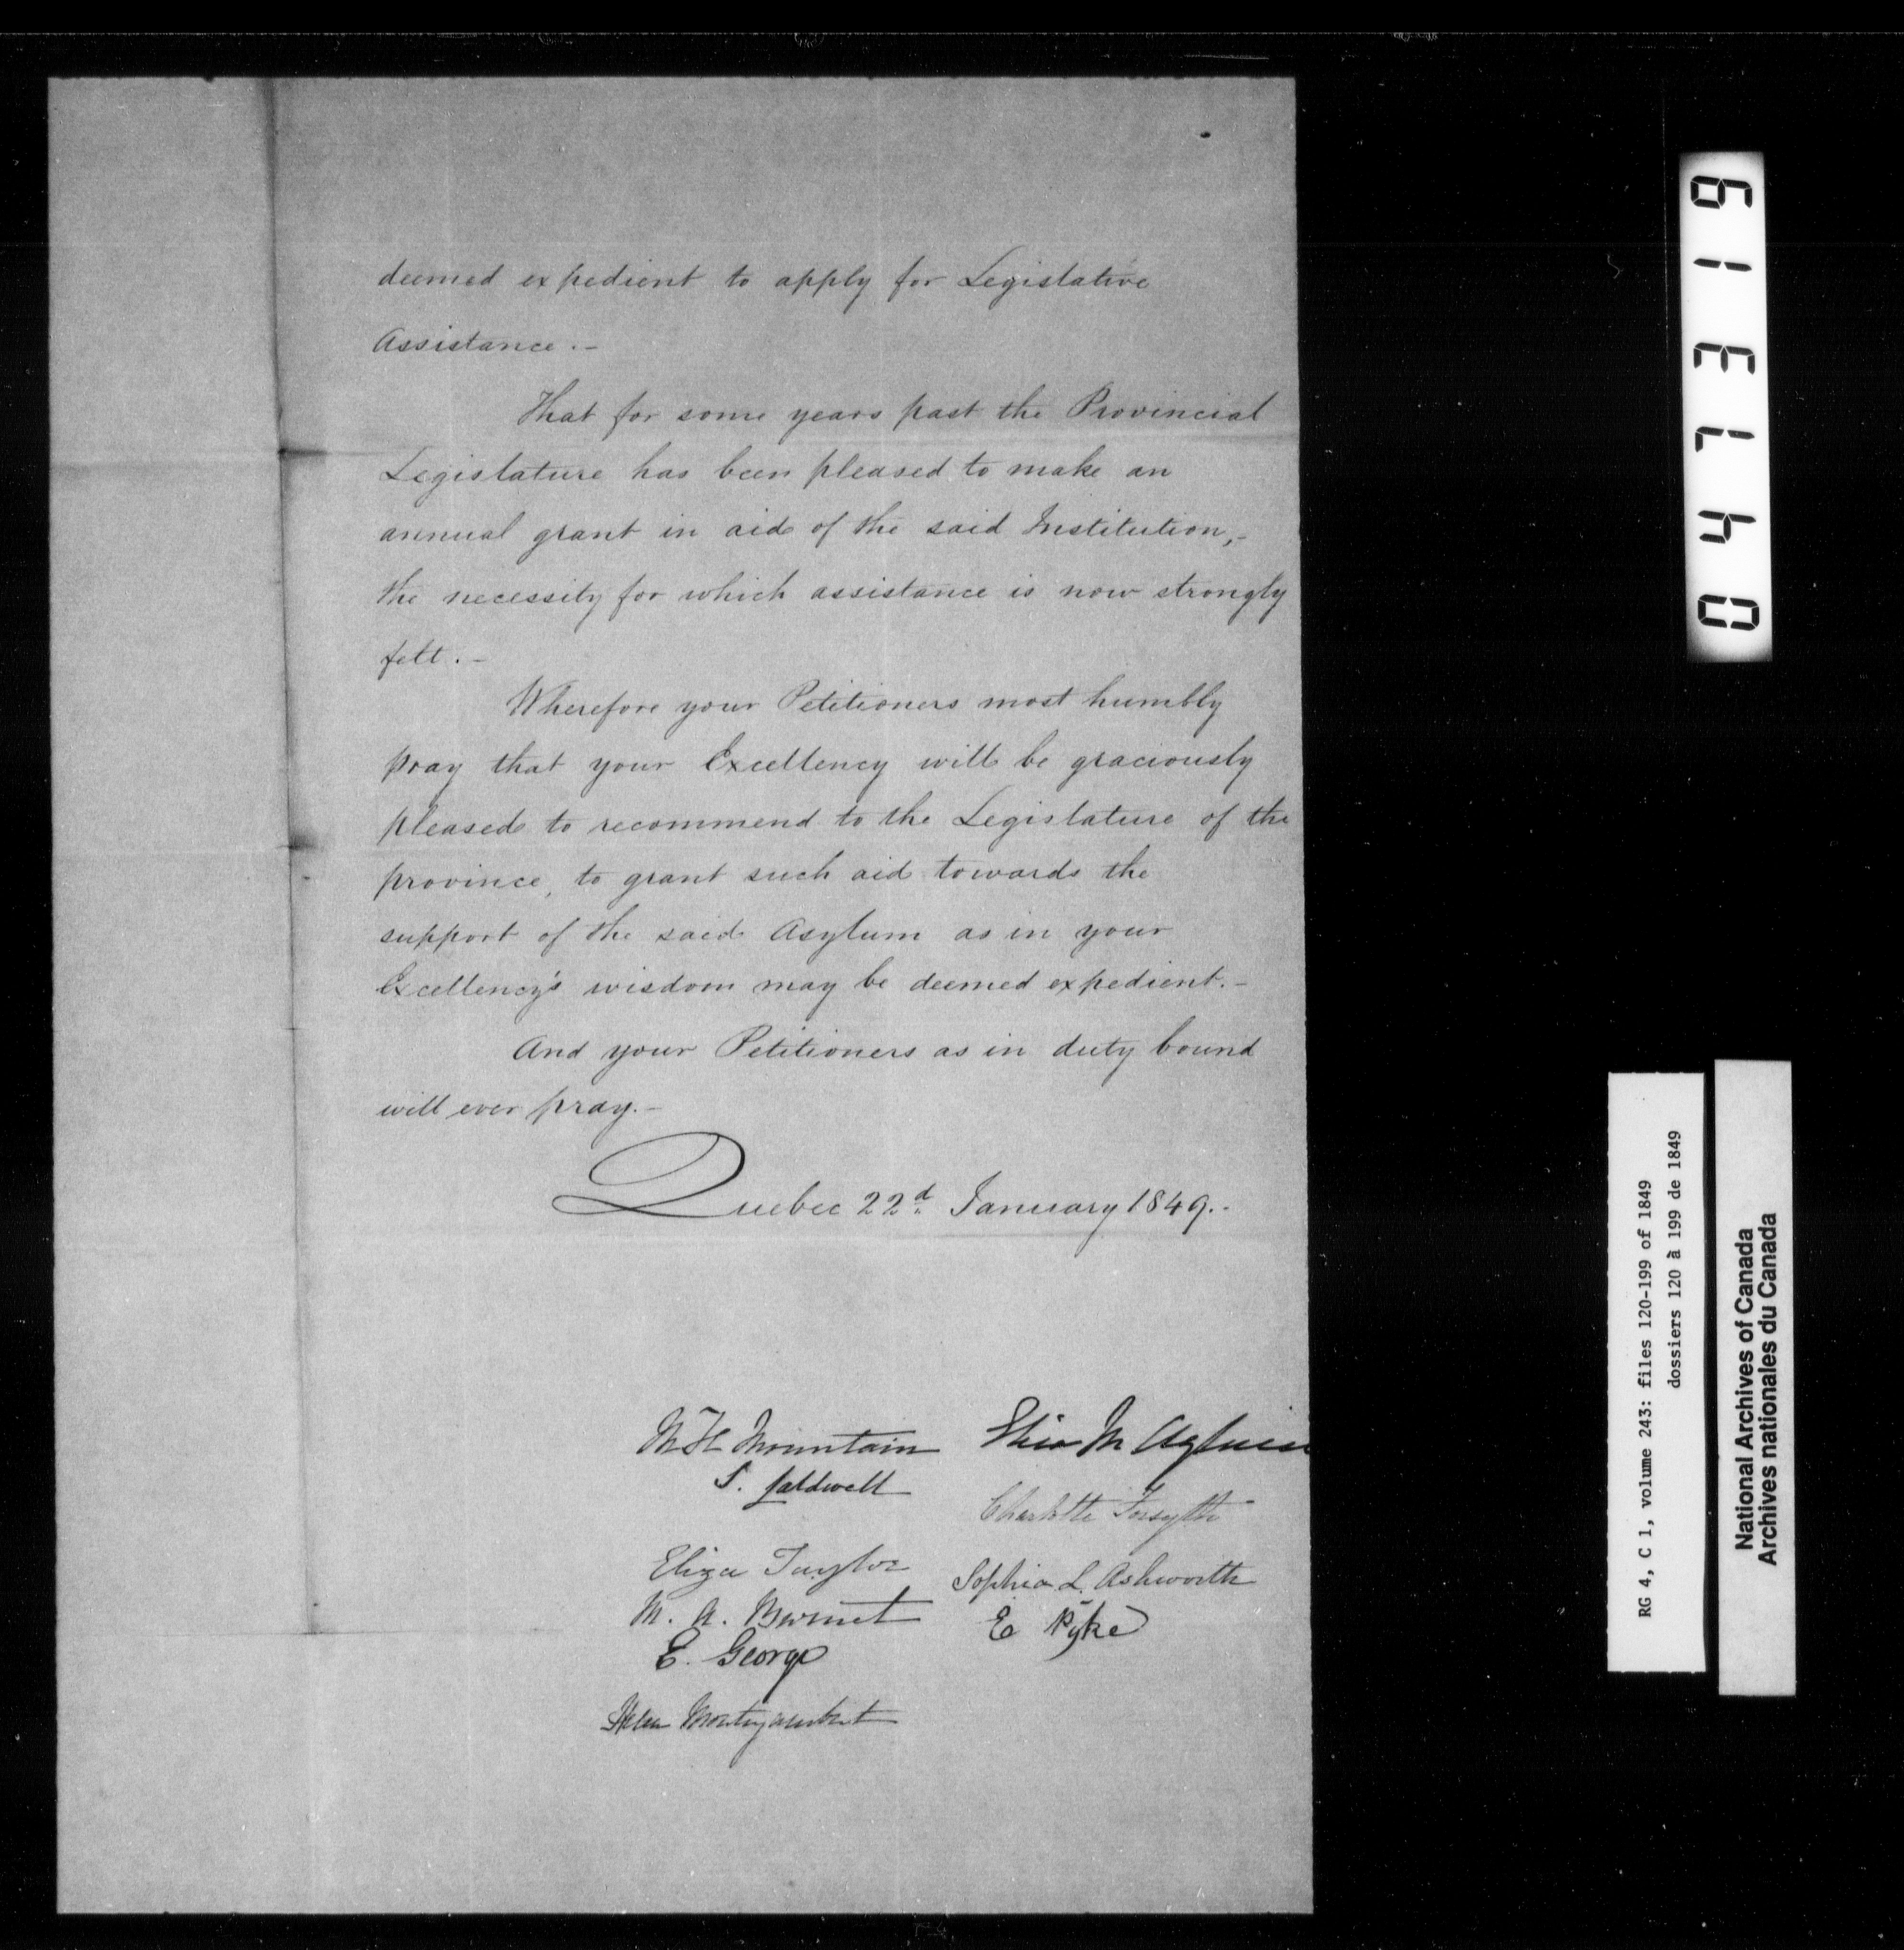 deemed expedient to apply for Legislative
Assistance.-
That for some years past the Provincial
Legislature has been pleased to make an
annual grant in aid of the said Institution,-
the necessity for which assistance is now strongly
felt.-
Wherefore your Petitioners most humbly
pray that your Excellency will be graciously
pleased to recommend to the Legislature of the
province, to grant such aid towards the
support of the said Asylum as in your
Excellency's wisdom may be deemed expedient.-
And your Petitioners as in duty bound
will ever pray.-
Quebec 22d January 1849.-
M H Mountain
S. Caldwell
Eliza Taylor
M. A. Burnet
E. George
Helen Montizambert
M Aylwin
Charlotte Forsyth
Sophia L. Ashworth
E Pyke
047319
RG 4, C 1, volume 243: files 120-199 of 1849
dossiers 120 à 199 de 1849
National Archives of Canada
Archives nationales du Canada